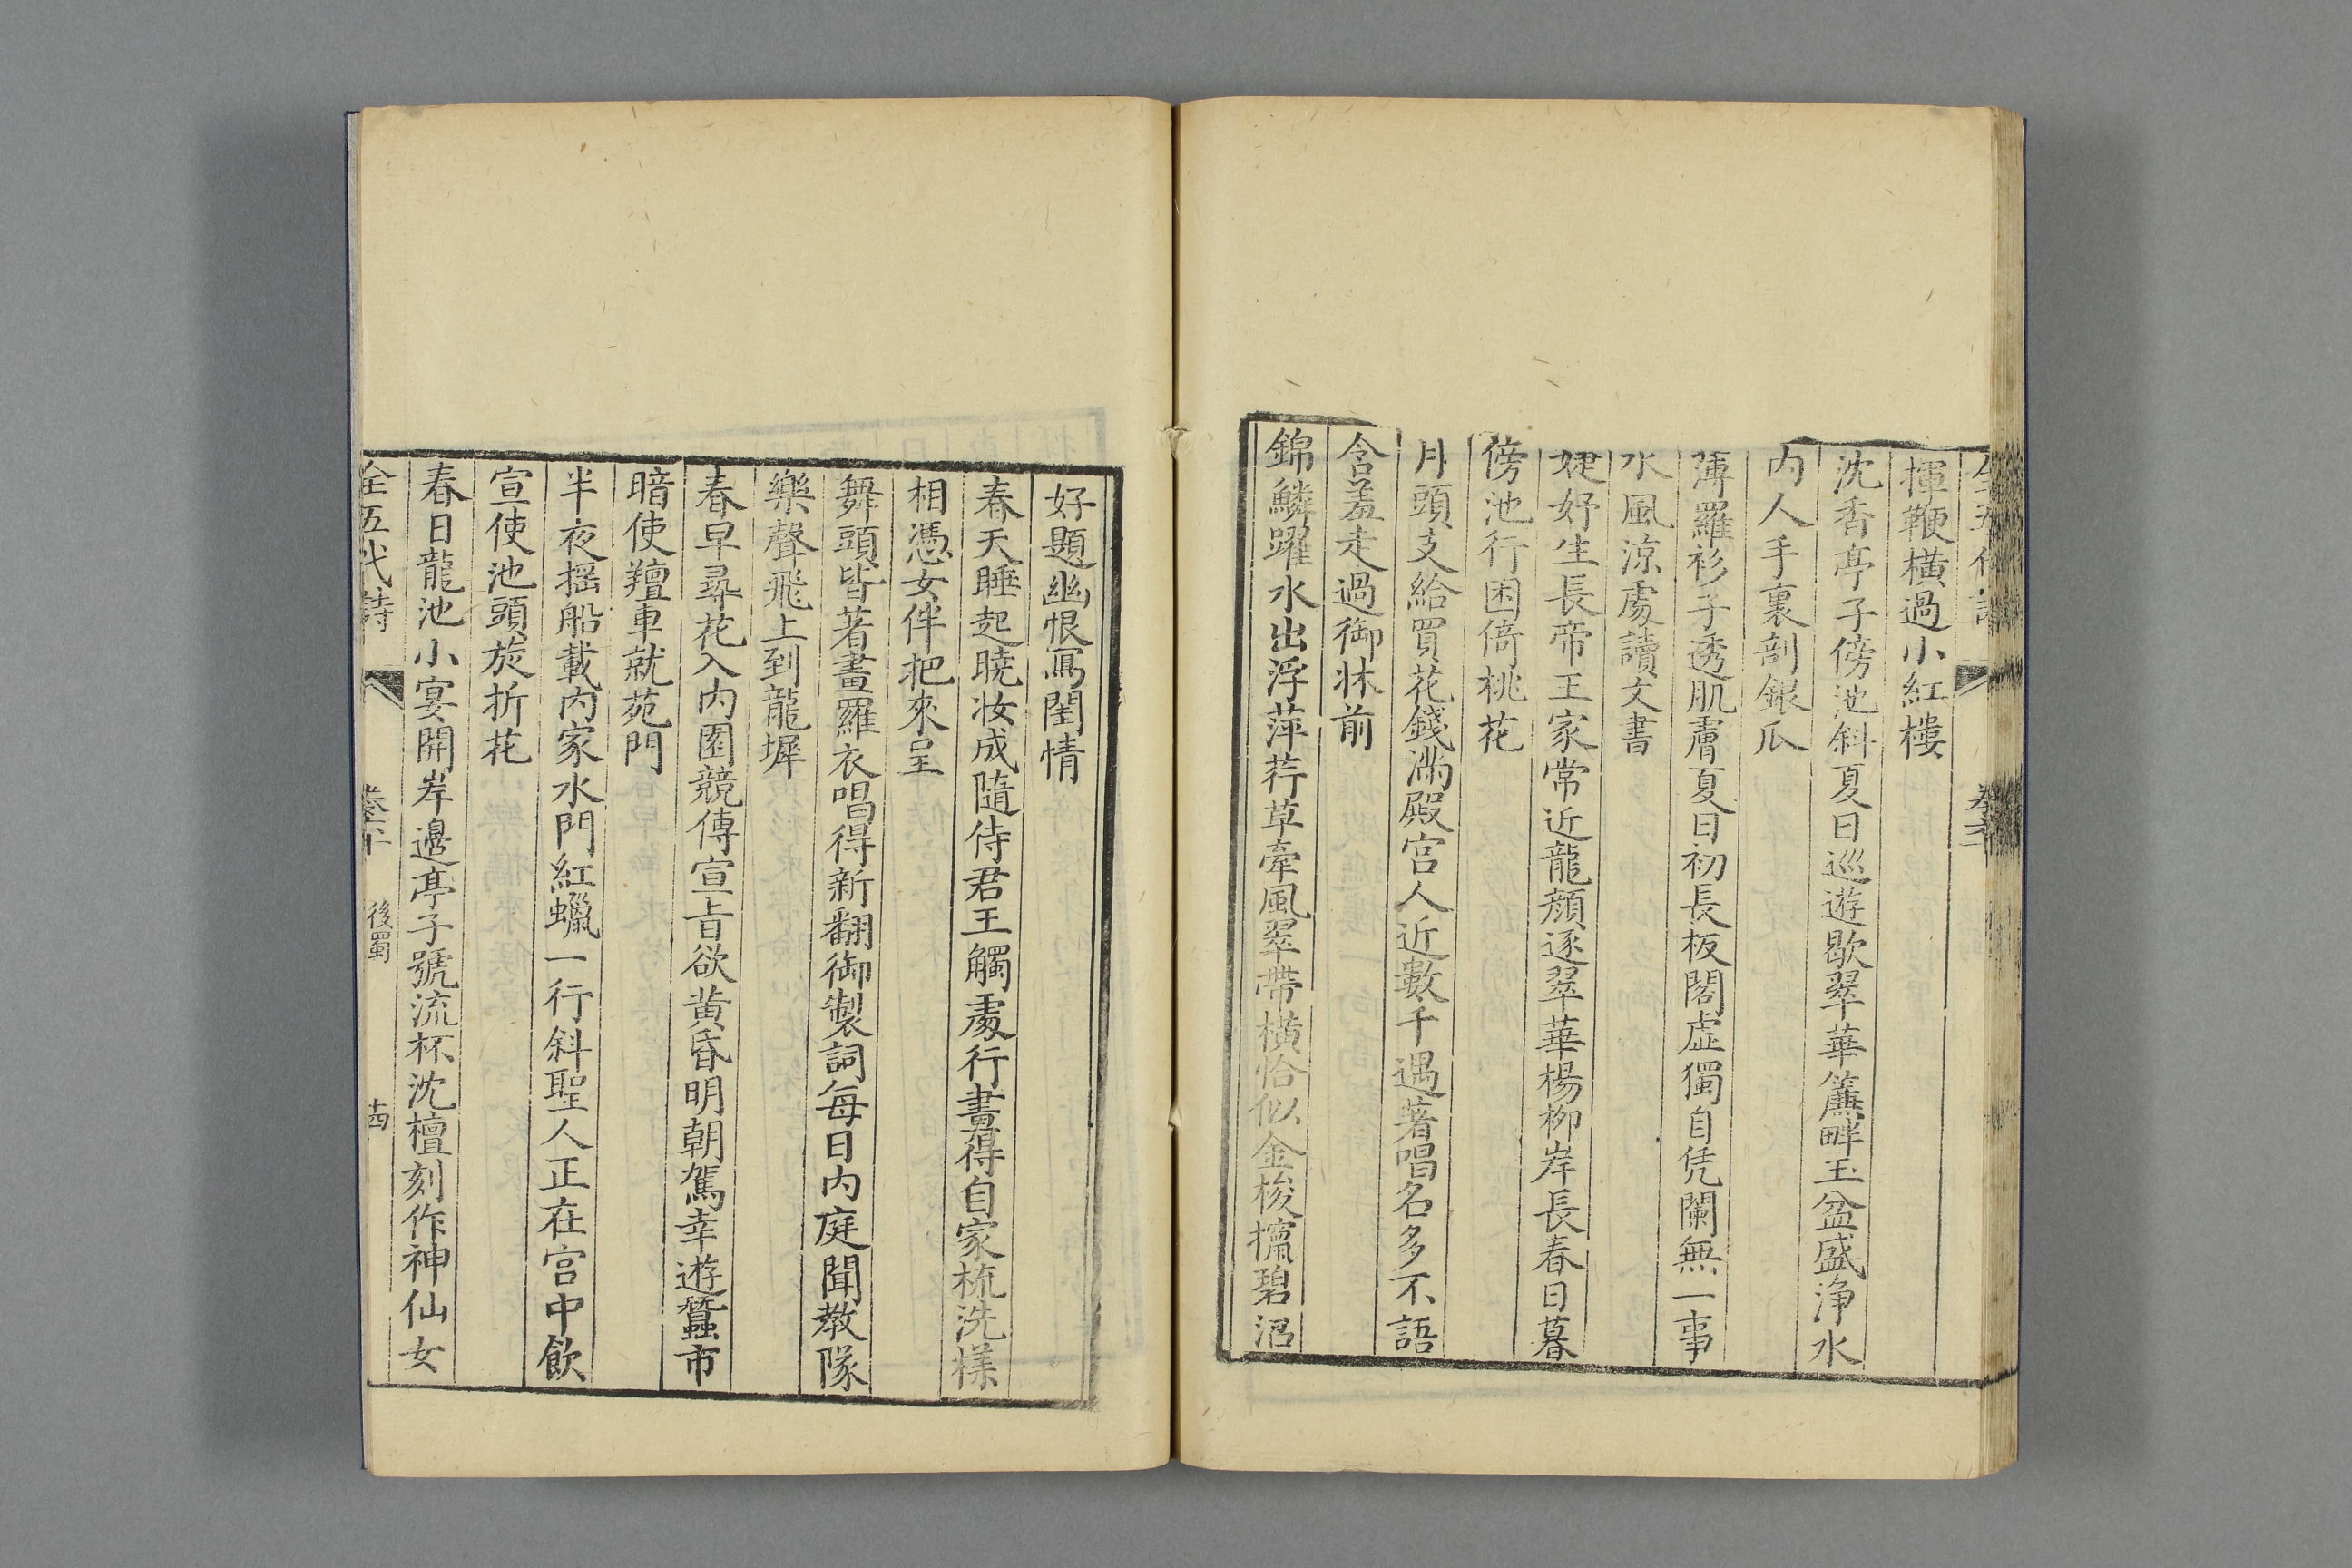 揮鞭橫過小紅樓
沈香亭子傍池斜夏日巡遊歇翠華簾畔玉盆盛淨水
內人手裏剖銀瓜
薄羅衫子透肌膚夏日初長板閣虛獨自凭闌無一事
水風涼處讀文書
婕妤生長帝王家常近龍顏逐翠華楊柳岸長春日暮
傍池行困倚桃花
月頭支給買花錢滿殿宮人近數千遇著唱名多不語
含羞走過御牀前
錦鱗躍水出浮萍荇草牽風翠帶橫恰似金梭攛碧沼
好題幽恨寫閨情
春天睡起曉妝成隨侍君王觸處行畫得自家梳洗樣
相憑女伴把來呈
舞頭皆著畫羅衣唱得新翻御製詞每日內庭聞教隊
樂聲飛上到龍墀
春早尋花入內園競傳宣旨欲黃昏明朝駕幸遊蠶市
暗使氊車就苑門
半夜搖船載內家水門紅蠟一行斜聖人正在宮中飲
宣使池頭旋折花
春日龍池小宴開岸邊亭子號流杯沈檀刻作神仙女
全五代詩
後蜀
十四